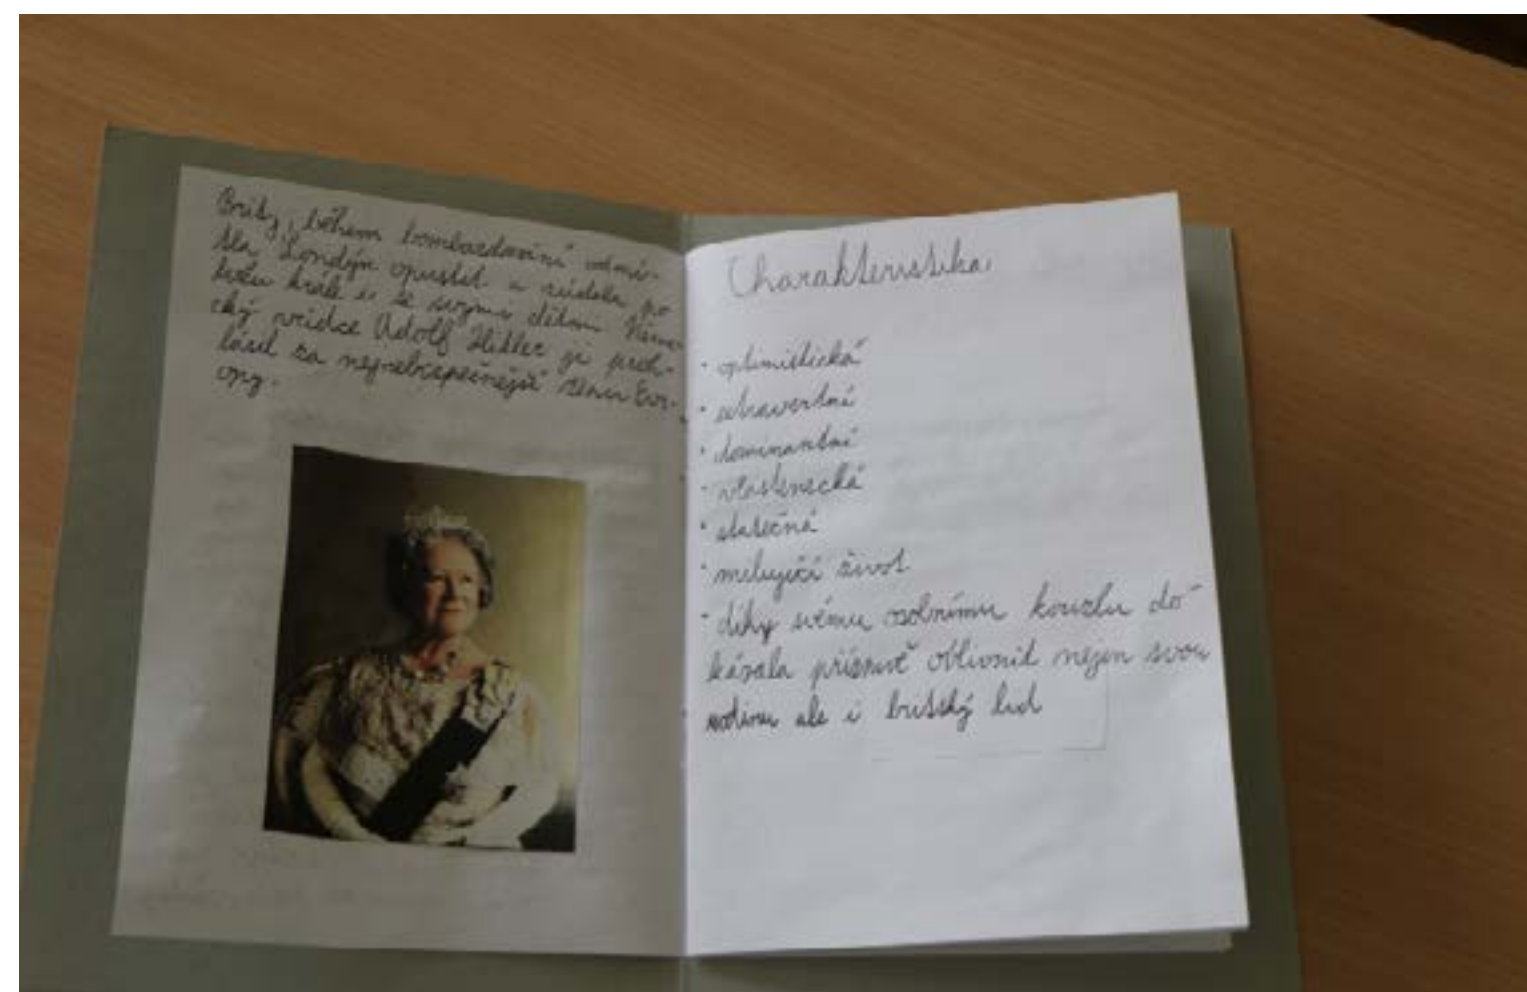 Brity, během bombardování odmí-
tla Londýn opustit a zůstala po
boku krále i se svými dětmi. Něme-
cký vůdce Adolf Hitler ji proh-
lásil za nejnebezpečnější ženu Evr-
opy.
Charakteristika
- optimistická
- extravertní
- dominantní
- vlastenecká
- statečná
- milující život
- díky svému osobnímu kouzlu do-
kázala příznivě ovlivnit nejen svou
rodinu ale i britský lid